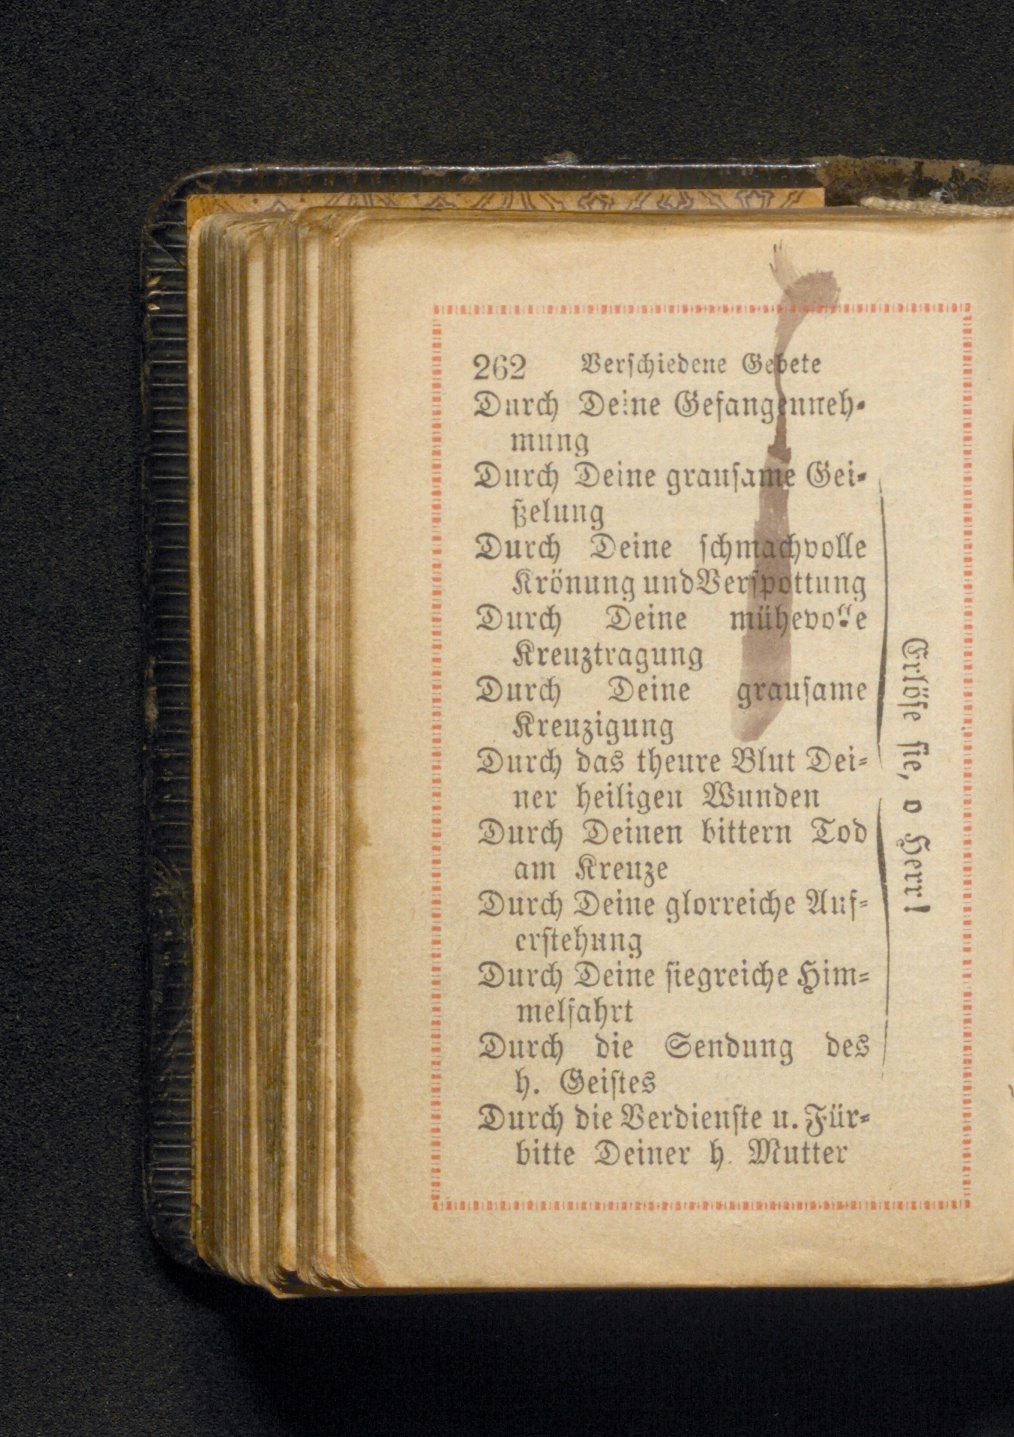 262 Verschiedene Gebete
Durch Deine Gefangenneh-
mung
Durch Deine grausame Gei-
ßelung
Durch Deine schmachvolle
Krönung und Verspottung
Durch Deine mühevolle
Kreuztragung
Durch Deine grausame
Kreuzigung
Durch das theure Blut Dei-
ner heiligen Wunden
Durch Deinen bittern Tod
am Kreuze
Durch Deine glorreiche Auf-
erstehung
Durch Deine siegreiche Him-
melfahrt
Durch die Sendung des
h. Geistes
Durch die Verdienste u. Für-
bitte Deiner h. Mutter
Erlöse sie, o Herr!